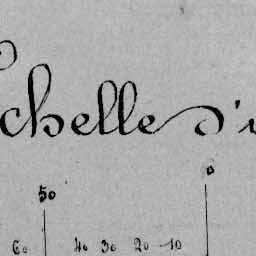 chelle d'
50 0
60 40 30 20 10